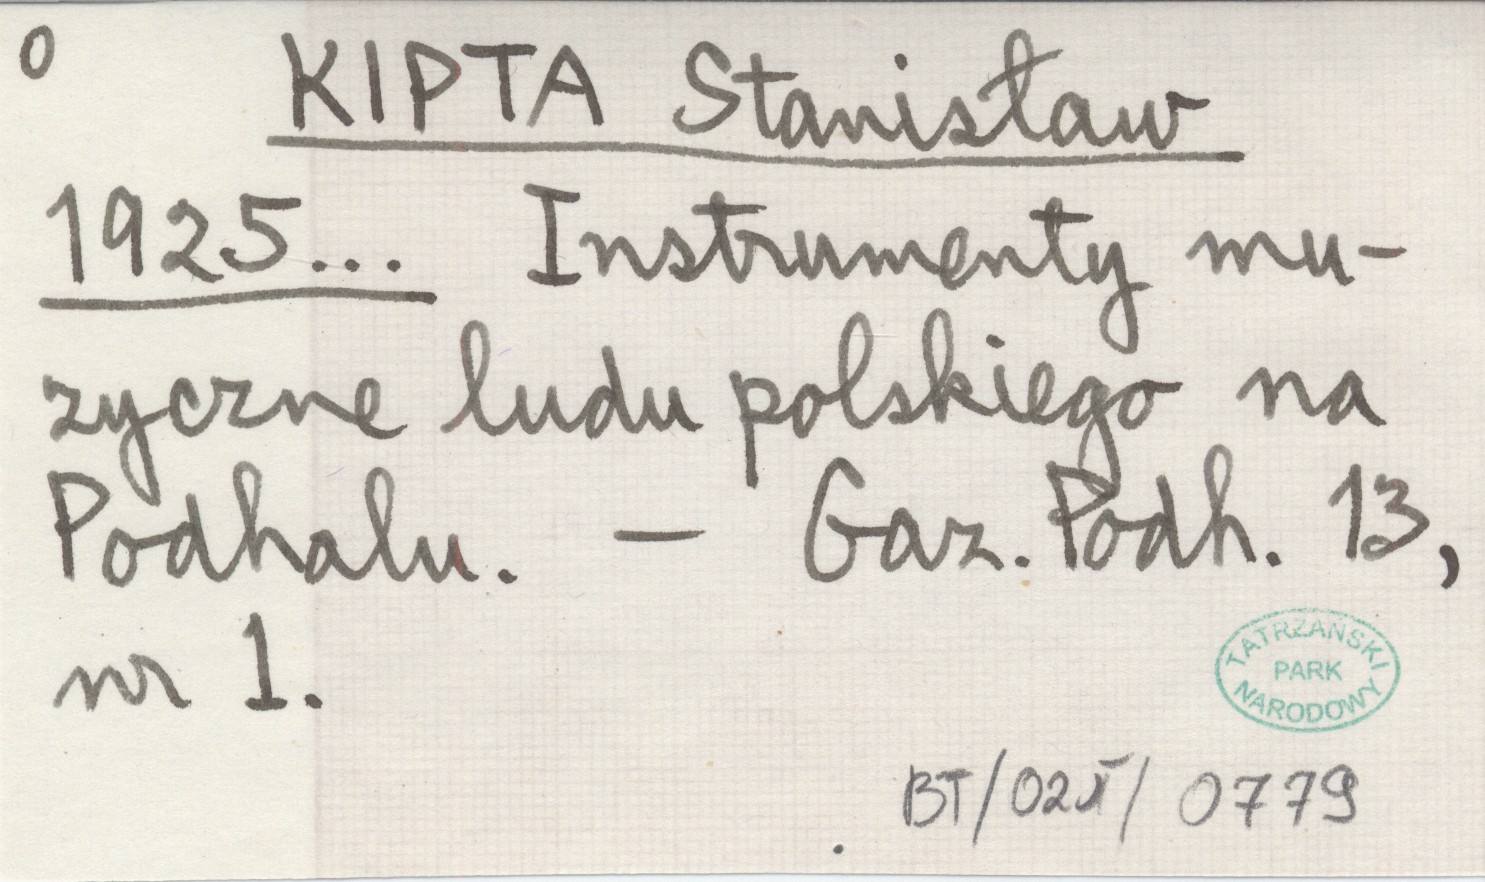 0
KIPTA Stanisław
1925... Instrumenty mu-
zyczne ludu polskiego na
Podhalu. — Gaz. Podh. 13,
nr 1.
TATRZAŃSKI
PARK
NARODOWY
BT/ 0779